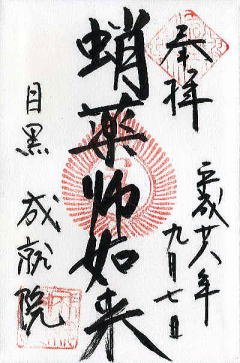 奉拝
平成廿八年
九月七日
蛸薬師如来
目黒
成就院